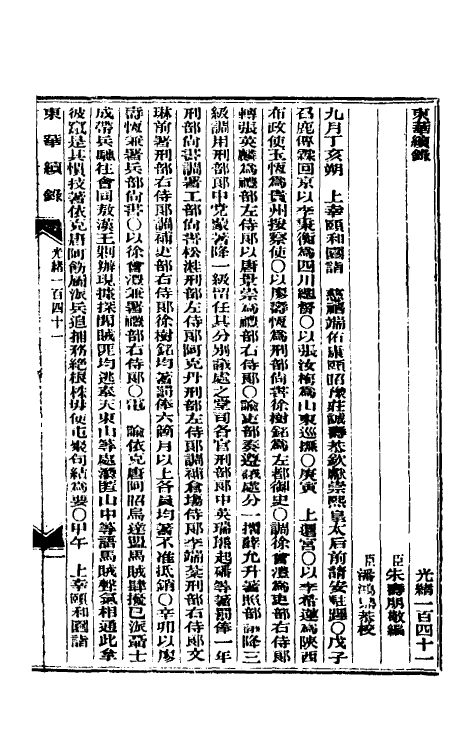 東華續錄
光緒一百四十一
臣朱壽朋敬編
臣潘鴻鼎恭校
九月丁亥朔　上幸頤和園詣　慈禧端佑康頤昭豫莊誠壽恭欽獻崇熙皇太后前請安駐蹕〇戊子
召鹿傳霖回京以李秉衡爲四川總督〇以張汝梅爲山東巡撫〇庚寅　上還宮〇以李希蓮爲陝西
布政使玉恆爲貴州按察使〇以廖壽恆爲刑部尚書徐樹銘爲左都御史〇調徐會灃爲吏部右侍郎
轉張英麟爲禮部左侍郎以唐景崇爲禮部右侍郎〇諭吏部奏遵議處分一摺薛允升著照部議降三
級調用刑部郎中党蒙著降一級留任其分別議處之堂司各官刑部郎中英瑞熊起磻等著罰俸一年
刑部尚書調署工部尚書松溎刑部左侍郎阿克丹刑部左侍郎調補倉場侍郎李端棻刑部右侍郎文
琳前署刑部右侍郎調補吏部右侍郎徐樹銘均著罰俸六箇月以上各員均著不准抵銷〇辛卯以廖
壽恆兼署兵部尚書〇以徐會灃兼署禮部右侍郎〇電　諭依克唐阿昭烏達盟馬賊肆擾已派聶士
成帶兵馳往會同敖漢王剿辦現據探聞賊匪均逃奈天東山等處潛匿山中等語馬賊聲氣相通此拿
彼竄是其慣技著依克唐阿飭屬派兵追捕務絕根株毋使屯聚句結爲要〇甲午　上幸頤和園詣
東華續錄　光緒一百四十一　一